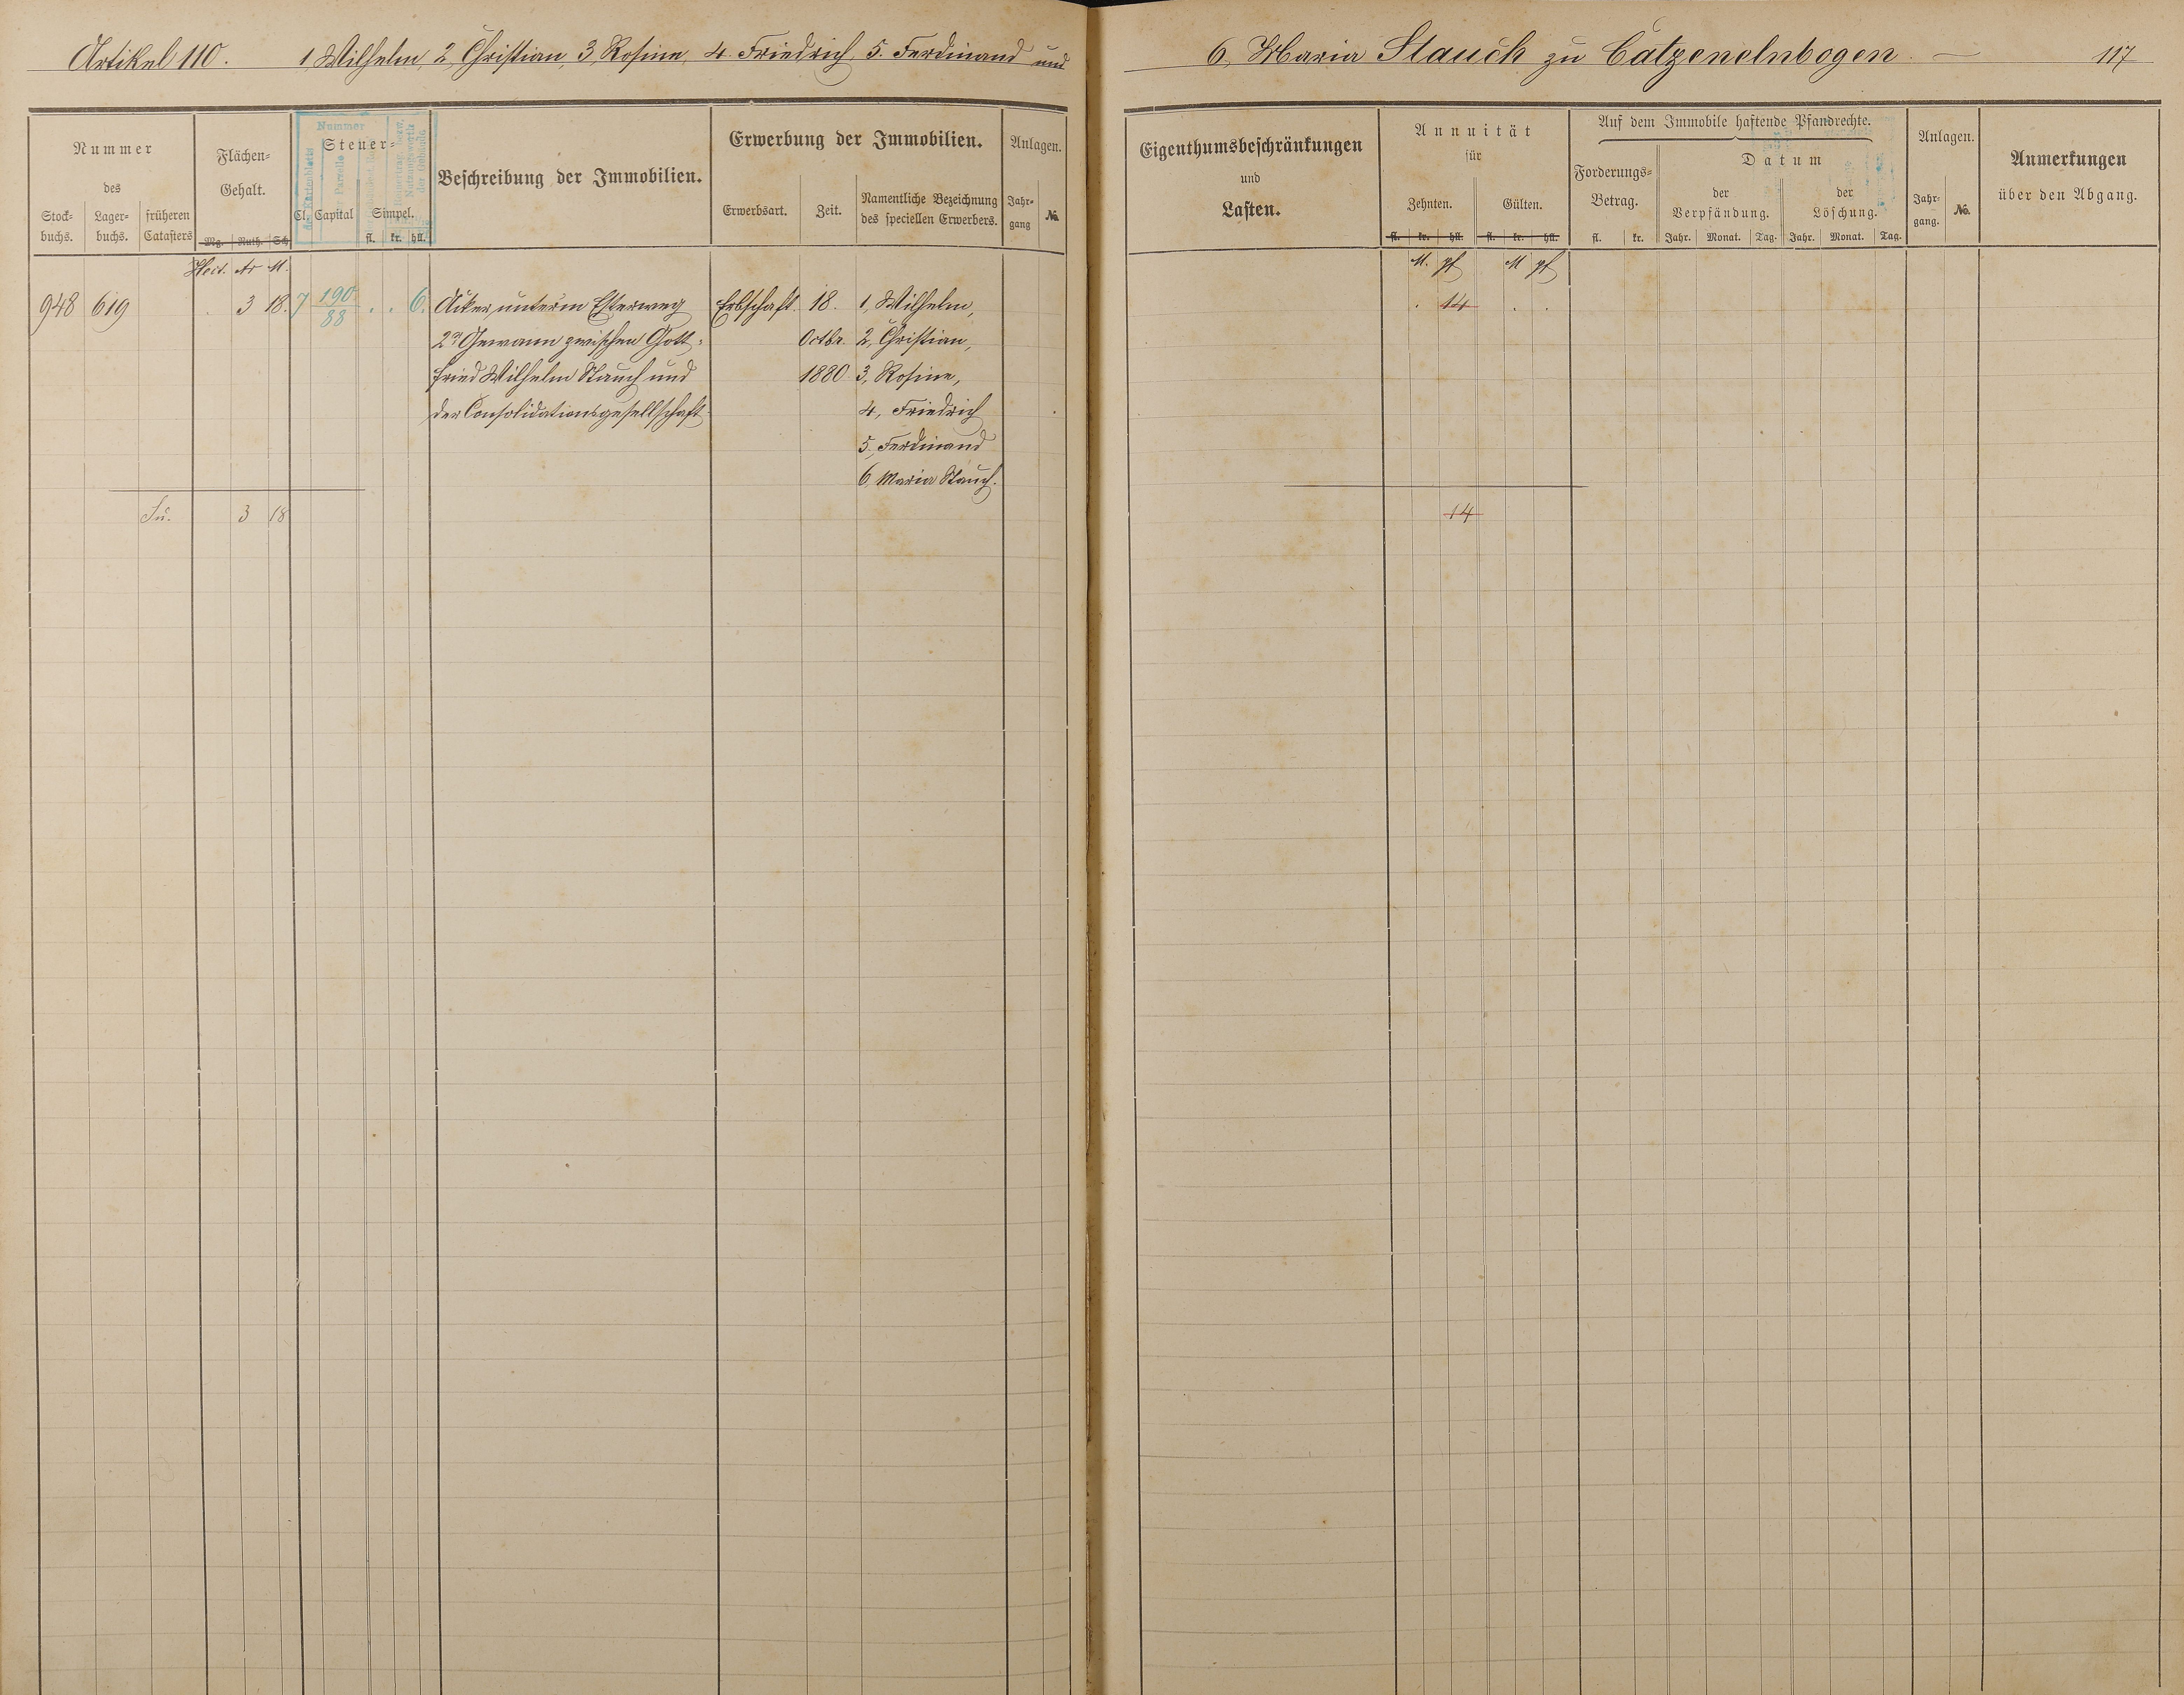 Artikel 110. 1, Wilhelm, 2, Christian, 3, Rosine, 4. Friedrich, 5. Ferdinand und
6, Maria Stauch zu Catzenelnbogen. — 117
Nummer
des
Stock-
buchs.
Lager-
buchs.
früheren
Catasters
Flächen-
Gehalt.
Mg. Ruth. Sch.
Nummer
Steuer-
Cl. Capital Simpel.
fl. kr. hll.
Beschreibung der Immobilien.
Erwerbung der Immobilien.
Erwerbsart. Zeit.
Namentliche Bezeichnung
des speciellen Erwerbers.
Anlagen.
Jahr-
gang
No.
Eigenthumsbeschränkungen
und
Lasten.
Annuität
für
Zehnten. Gülten.
fl. kr. hll. fl. kr. hll.
Auf dem Immobile haftende Pfandrechte.
Forderungs-
Betrag.
fl. kr.
Datum
der
Verpfändung.
der
Löschung.
Jahr. Monat. Tag. Jahr. Monat. Tag.
Anlagen.
Jahr-
gang.
No.
Anmerkungen
über den Abgang.
Hect. Ar M. M. pf M pf
948 619 . 3 18. 7 190/88 . . 6. Acker unterm Esterweg Erbschaft. 18. 1, Wilhelm, . 14 . .
2r Gewann zwischen Gott- Octbr. 2, Christian,
fried Wilhelm Stauch und 1880 3, Rosine,
der Consolidationsgesellschaft 4, Friedrich
5. Ferdinand
6, Maria Stauch.
Su. 3 18 14